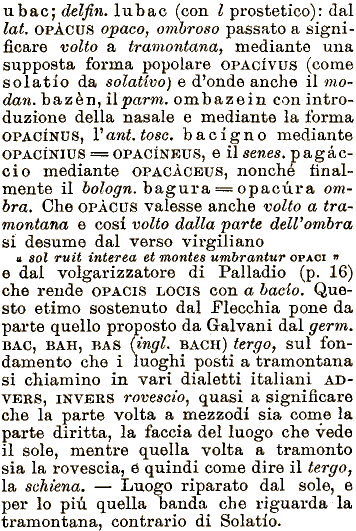 ubac; delfin. lubac (con l prostetico): dal
lat. OPÀCUS opaco, ombroso passato a signi-
ficare volto a tramontana, mediante una
supposta forma popolare OPACÍVUS (come
solatío da solatívo) e d'onde anche il mo-
dan. bazèn, il parm. ombazein con intro-
duzione della nasale e mediante la forma
OPACÍNUS, l'ant. tosc. bacígno mediante
OPACÍNIUS = OPACÍNEUS, e il senes. pagác-
cio mediante OPACÀCEUS, nonché final-
mente il bologn. bagura = opacúra om-
bra. Che OPÀCUS valesse anche volto a tra-
montana e cosí volto dalla parte dell'ombra
si desume dal verso virgiliano
« sol ruit interea et montes umbrantur OPACI »
e dal volgarizzatore di Palladio (p. 16)
che rende OPACIS LOCIS con a bacío. Que-
sto etimo sostenuto dal Flecchia pone da
parte quello proposto da Galvani dal germ.
BAC, BAH, BAS (ingl. BACH) tergo, sul fon-
damento che i luoghi posti a tramontana
si chiamino in vari dialetti italiani AD-
VERS, INVERS rovescio, quasi a significare
che la parte volta a mezzodí sia come la
parte diritta, la faccia del luogo che vede
il sole, mentre quella volta a tramonto
sia la rovescia, e quindi come dire il tergo,
la schiena. — Luogo riparato dal sole, e
per lo piú quella banda che riguarda la
tramontana, contrario di Solatío.